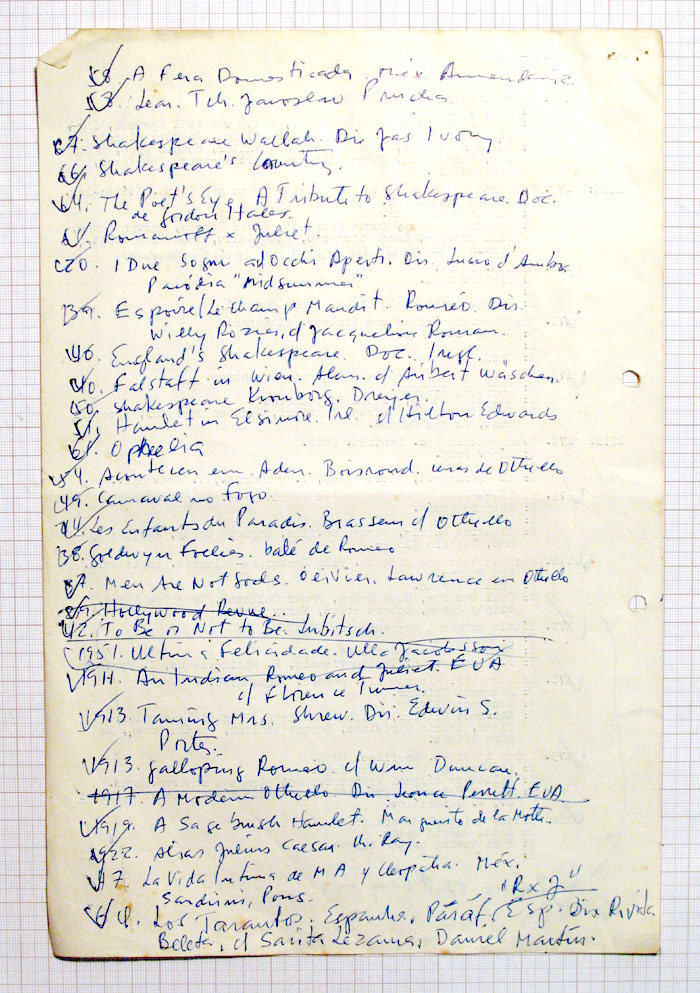 58. A Fera Domesticada. Méx Armendariz
53. Lear. Tch. Jaroslav Prucha
67. Shakespeare Wallah. Dir Jas Ivory
66. Shakespeare's Country.
64. The Poet's Eye. A Tribute to Shakespeare. Doc.
de Gordon Hales.
61. Romanoff x Juliet.
C20. I Due Sogni ad Occhi Aperti. Dir. Lucio d'Ambra
Paródia "Midsummer"
39. Espoirs/Le Champ Maudit. Roméo. Dir.
Willy Rozier, c/ Jacqueline Roman.
46. England's Shakespeare. Doc. Ingl.
40. Falstaff in Wien. Alem. c/ Aribert Wäscher.
50. Shakespeare Kronborg. Dreyer.
51. Hamlet in Elsinore. Irl. c/ Hilton Edwards
61. Ophelia
54. Aconteceu em Aden. Boisrond. cenas de Othello
49. Carnaval no Fogo
44. Les Enfants du Paradis. Brasseur c/ Othello
38. Goldwyn Follies. balé de Romeo
37. Men Are Not Gods. Olivier. Lawrence em Othello
29. Hollywood Revue..
42. To Be or Not to Be. Lubitsch.
1951. Ultima Felicidade. Ulla Jacobsson
1911. An Indian Romeo and Juliet. EUA
c/ Florence Turner.
1913. Taming Mrs. Shrew. Dir. Edwin S.
Porter.
1913. Galloping Romeo. c/ Wm Duncan.
1917. A Modern Othello. Dir. Leonce Perrett. EUA
1919. A Sagebrush Hamlet. Marguerite de la Motte.
1922. Alias Julius Caesar. Ch. Ray.
47. La Vida Intima de M A y Cleopatra. Méx.
Sandrini, Pons.
"R x J"
64. Los Tarantos. Espanha, Paráf. Esp. Dir Rovira
Beleta, c/ Sarita Lezama, Daniel Martin.